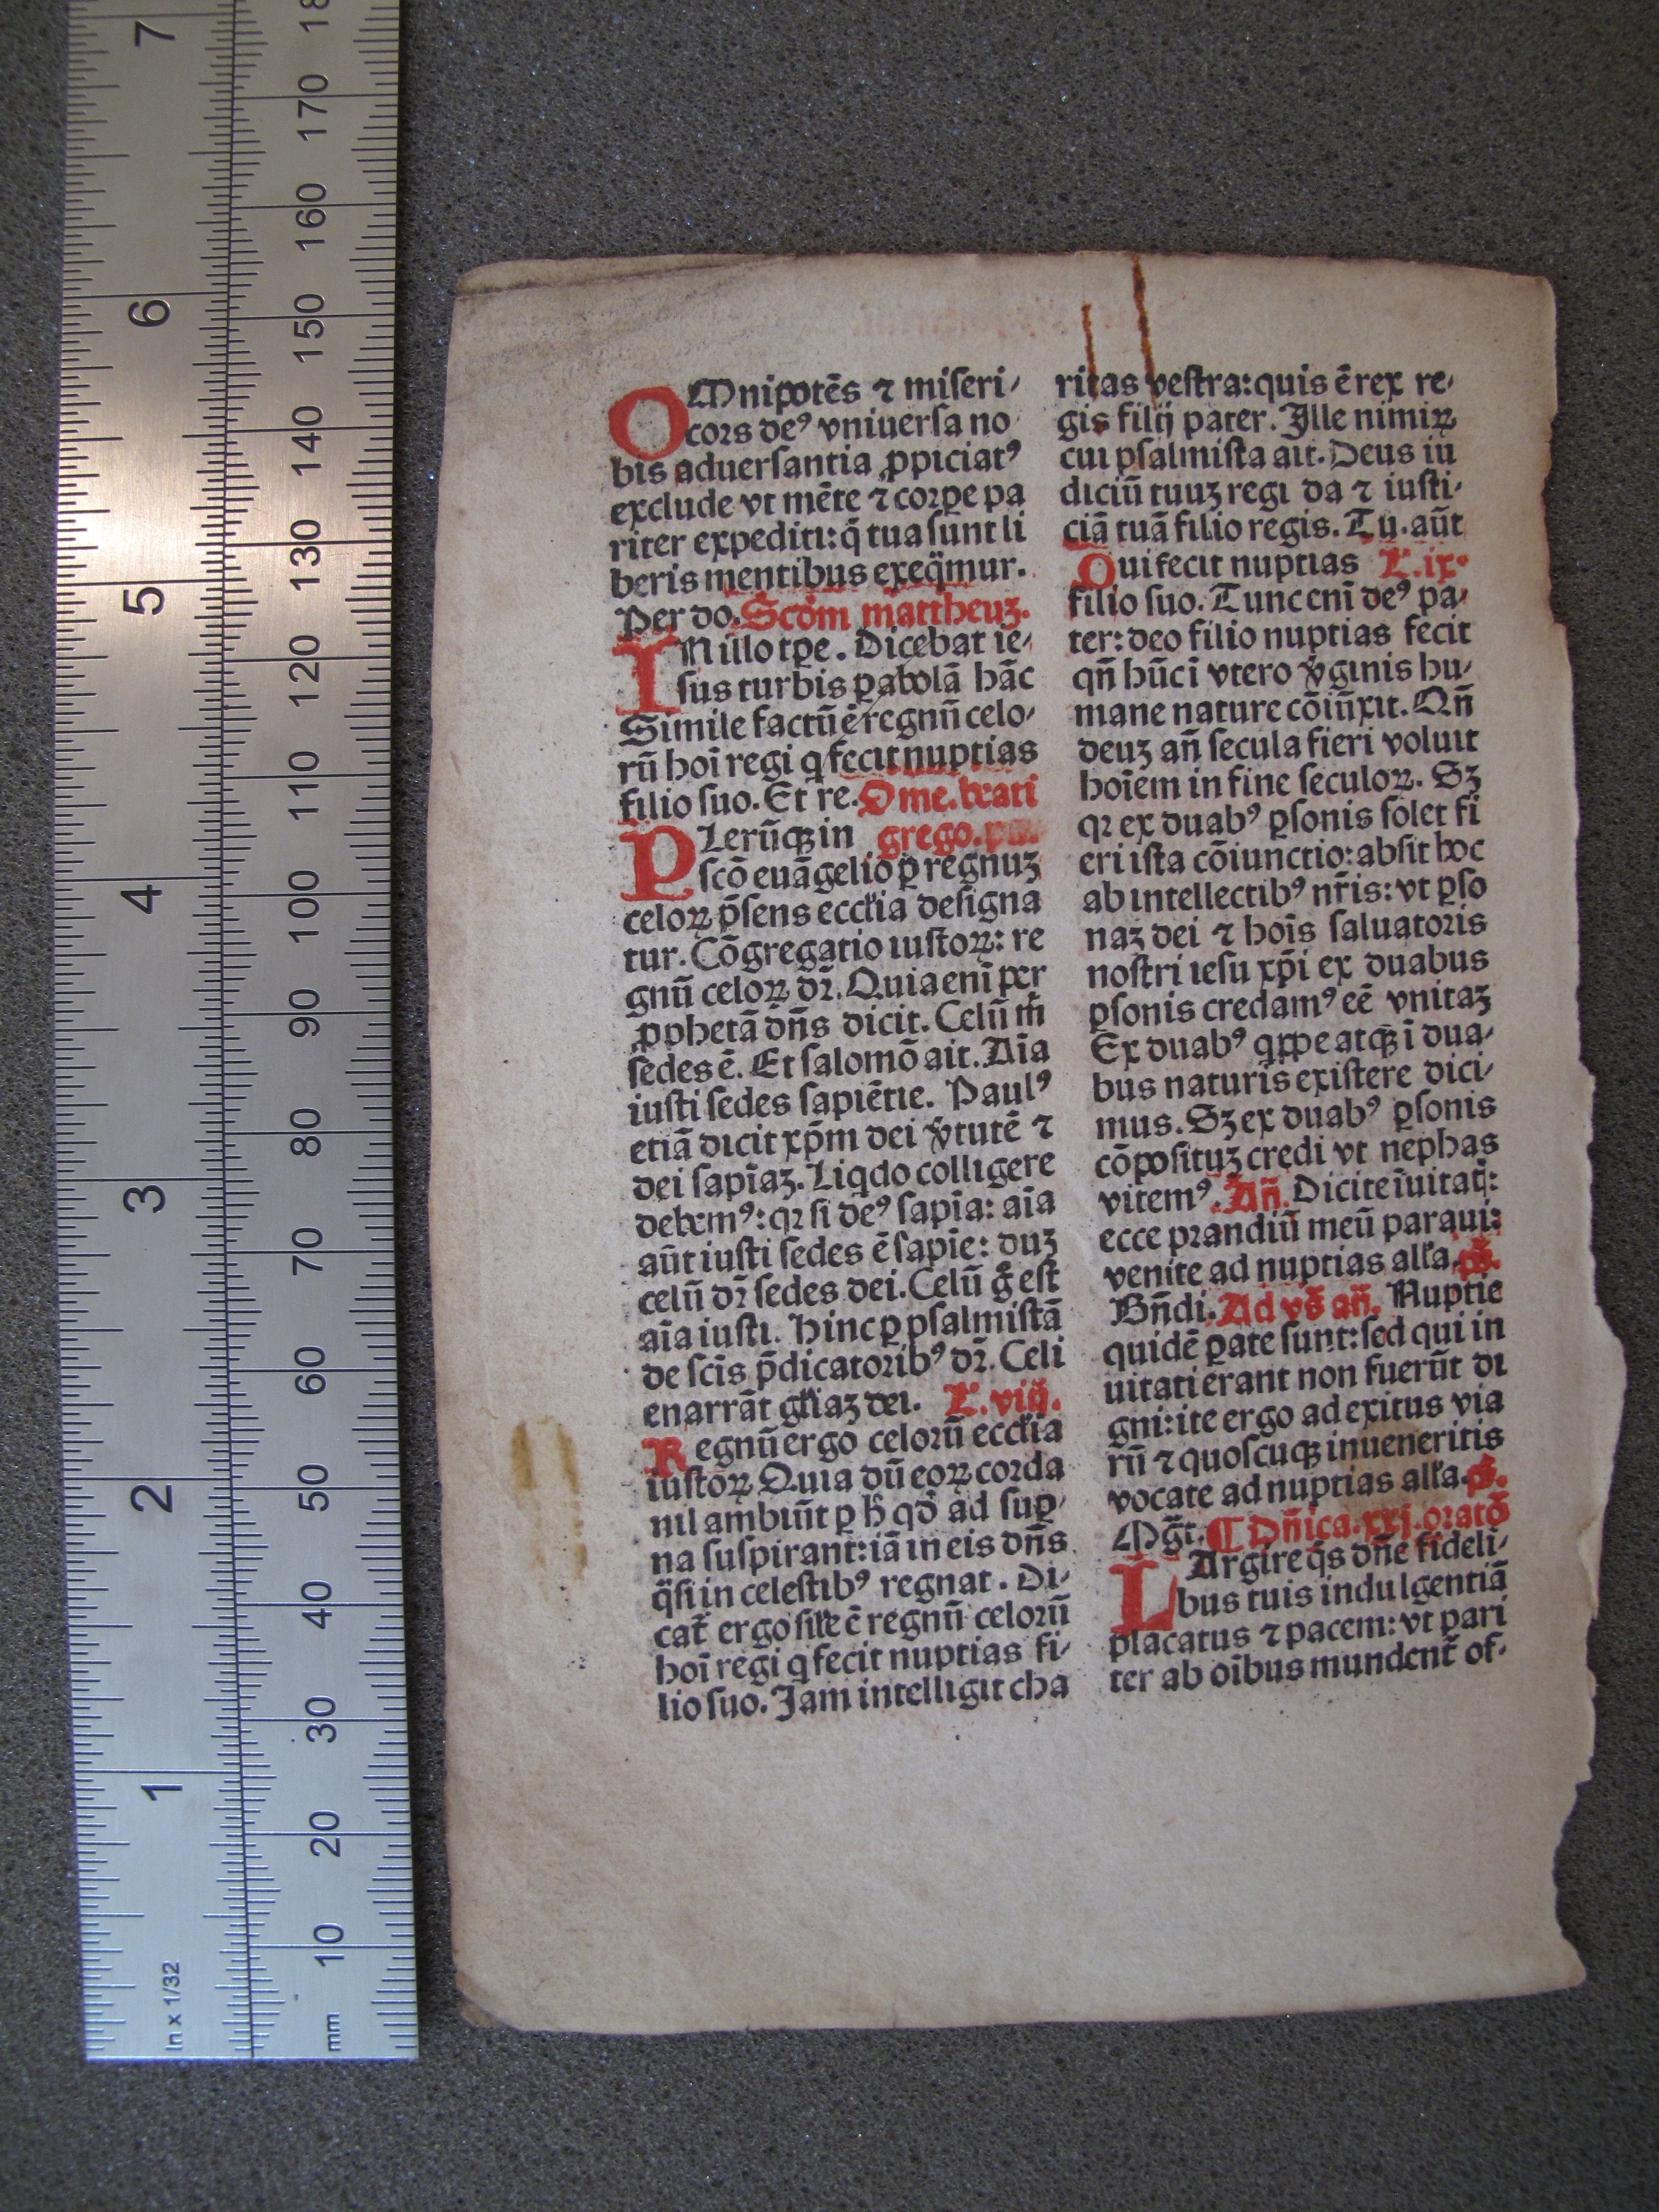 OMnipotēs ⁊ miseri-
cors deꝰ vniuersa no
bis aduersantia ꝓpiciatꝰ
exclude vt mēte ⁊ corꝑe pa
riter expediti: q̄ tua sunt li
beris mentibus exeq̄mur.
Per do. Scdm mattheuʒ.
IN illo tꝑe. Dicebat ie-
sus turbis ꝑabolā hāc
Simile factū ē regnū celo-
rū hoī regi q fecit nuptias
filio suo. Et re. Ome. beati
PLerūqꝫ in grego. pa.
scō euāgelio ꝑ regnuʒ
celoꝝ p̄sens eccƚia designa
tur. Cōgregatio iustoꝝ: re
gnū celoꝝ dr̄. Quia enī per
ꝓphetā dn̄s dicit. Celū m̄
sedes ē. Et salomō ait. Aīa
iusti sedes sapiētie. Paulꝰ
etiā dicit xp̄m dei v̄tutē ⁊
dei sapīaʒ. Liqdo colligere
debemꝰ: qꝛ si deꝰ sapīa: aīa
aūt iusti sedes ē sapīe: duʒ
celū dr̄ sedes dei. Celū g̊ est
aīa iusti. Hinc ꝑ psalmistā
de scīs p̄dicatoribꝰ dr̄. Celi
enarrāt gƚiaʒ dei. L. viij.
Regnū ergo celorū eccƚia
iustoꝝ. Quia dū eoꝝ corda
nil ambiūt ꝑ h̄ qd̄ ad suꝑ-
na suspirant: iā in eis dn̄s
q̄si in celestibꝰ regnat. Di-
cat̄ ergo siƚe ē regnū celorū
hoī regi q fecit nuptias fi-
lio suo. Jam intelligit cha
ritas vestra: quis ē rex re-
gis filij pater. Ille nimiꝝ
cui psalmista ait. Deus iu
diciū tuuʒ regi da ⁊ iusti-
ciā tuā filio regis. Tu. aūt
Qui fecit nuptias L. ix.
filio suo. Tunc enī deꝰ pa-
ter: deo filio nuptias fecit
qn̄ hūc ī vtero v̄ginis hu-
mane nature cōiūxit. Qn̄
deuʒ an̄ secula fieri voluit
hoīem in fine seculoꝝ. Sʒ
qꝛ ex duabꝰ ꝑsonis solet fi
eri ista cōiunctio: absit hoc
ab intellectibꝰ nr̄is: vt ꝑso
naʒ dei ⁊ hoīs saluatoris
nostri iesu xp̄i ex duabus
ꝑsonis credamꝰ eē vnitaʒ
Ex duabꝰ qꝓpe atqꝫ ī dua-
bus naturis existere dici-
mus. Sʒ ex duabꝰ ꝑsonis
cōpositūʒ credi vt nephas
vitemꝰ. An̄. Dicite īuitat̄:
ecce prandiū meū paraui:
venite ad nuptias alƚa. ps̄.
Bn̄di. Ad vs̄ an̄. Nuptie
quidē ꝑate sunt: sed qui in
uitati erant non fuerūt di
gni: ite ergo ad exitus via
rū ⁊ quoscuqꝫ inueneritis
vocate ad nuptias alƚa. ps̄.
Mḡt. ¶ Dn̄ica. xxj. oratō
LArgire q̄s dn̄e fideli-
bus tuis indulgentiā
placatus ⁊ pacem: vt pari
ter ab oībus mundent̄ of-
7
6
5
4
3
2
1
In x 1/32
18
170
160
150
140
130
120
110
100
90
80
70
60
50
40
30
20
10
mm